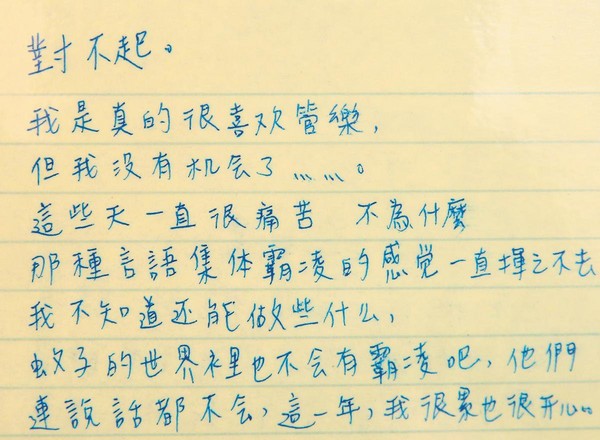 對不起。
我是真的很喜欢管樂，
但我没有机会了……。
這些天一直很痛苦 不為什麼
那種言語集体霸凌的感觉一直揮之不去
我不知道还能做些什么，
蚊子的世界裡也不会有霸凌吧，他們
連說話都不会，這一年，我很累也很开心。